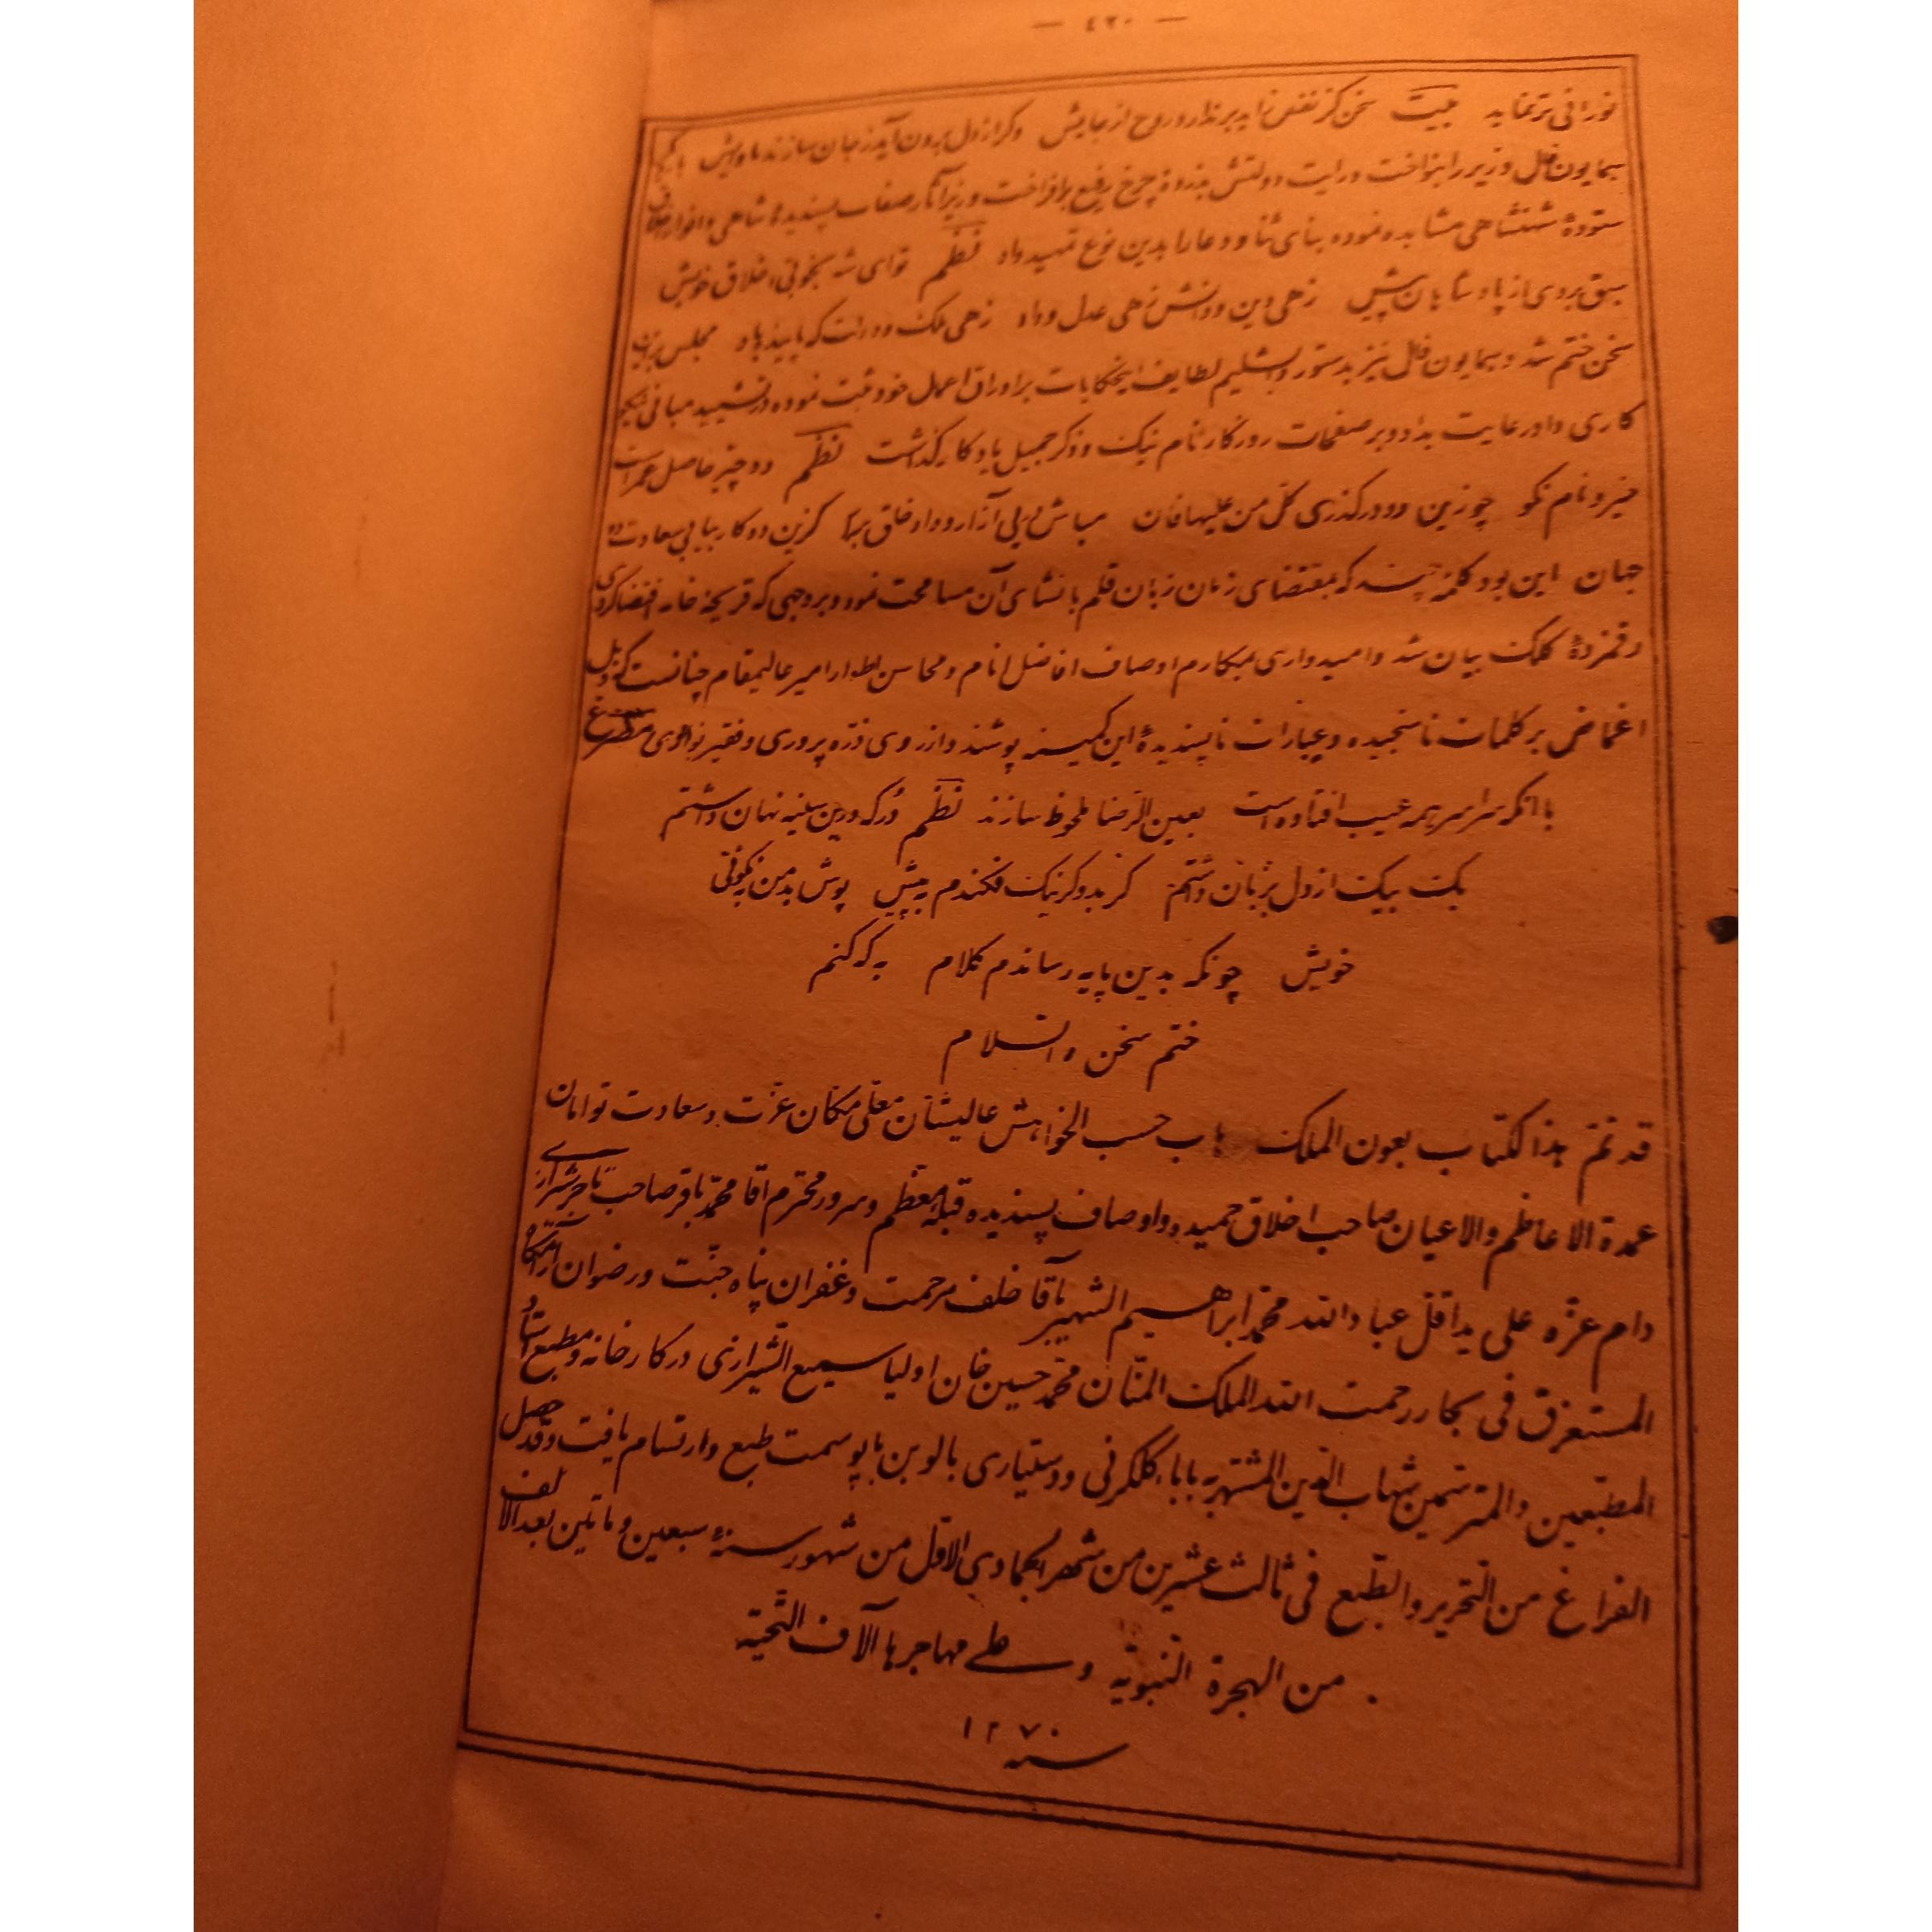 — ٤٢٠ —
نورانی تر نماید بیت سخن کز نفس زاید برندارد روح از جایش وگر از دل برون آید ز جان سازند ماویش
همایون فال وزیر را بنواخت و رایت دولتش بذروۀ چرخ رفیع برافراخت وزیر آثار صفات پسندیدۀ شاهی و انوار اخلاق
ستودۀ شهنشاهی مشاهده نموده بنای ثنا و دعا را بدین نوع تمهید داد نظم توای شه بخوبی اخلاق خویش
سبق بردی از پادشاهان پیش زهی دین و دانش زهی عدل و داد زهی ملک و دولت که پاینده باد مجلس برین
سخن ختم شد و همایون فال نیز بدستور دابشلیم لطایف اینحکایات بر اوراق اعمال خود ثبت نموده در تشیید مبانی نیکو
کاری داد رعایت بداد و بر صفحات روزگار نام نیک و ذکر جمیل یادگار گذاشت نظم دو چیز حاصل عمر است
خیر و نام نکو چو زین دو درگذری کل من علیها فان مباش در پی آزار و داد خلق بده کزین دو کار بیابی سعادت دو
جهان این بود کلمۀ چند که بمقتضای زمان زبان قلم بانشای آن مسامحت نمود و بر وجهی که قریحۀ خامه اقتضا کردی
رقمزدۀ کلک بیان شد و امیدواری بمکارم اوصاف افاضل انام و محاسن اطوار امیر عالیمقام چنانست که ذیل
اغماض بر کلمات ناسنجیده و عبارات ناپسندیدۀ این کمینه پوشند و از روی ذره پروری و فقیر نوازی مصرع
با آنکه سراسر همه عیب افتاده است بعین الرضا ملحوظ سازند نظم در که درین سینه نهان داشتم
یک بیک از دل بزبان داشتم گر بد و گر نیک فکندم به پیش پوش بد من به نکوئی
خویش چونکه بدین پایه رساندم کلام به که کنم
ختم سخن والسلام
قد تمّ هذا لکتاب بعون الملک هاب حسب الخواهش عالیشان معلی مکان عزت و سعادت توامان
عمدة الاعاظم والاعیان صاحب اخلاق حمیده و اوصاف پسندیده قبله معظم و سرور محترم اقا محمد باقر صاحب تاجر شیرازی
دام عزه علی ید اقل عباد الله محمد ابراهیم الشهیر بآقا خلف مرحمت و غفران پناه جنت و رضوان آرامگاه
المستغرق فی بحار رحمت الله الملک المنّان محمد حسین خان اولیا سمیع الشیرازی در کارخانه و مطبع استاد
المطبّعین والمترسّمین شهاب الدین المشتهر به بابا کلکرنی و دستیاری بالو بن باپو سمت طبع و ارتسام یافت وقد حصل
الفراغ من التحریر والطّبع فی ثالث عشرین من شهر الجمادی الاوّل من شهور سنۀ سبعین و ماتین بعد الالف
من الهجرة النّبویّه وعلی مهاجرها آلاف التّحیّة
سنه ۱۲۷۰